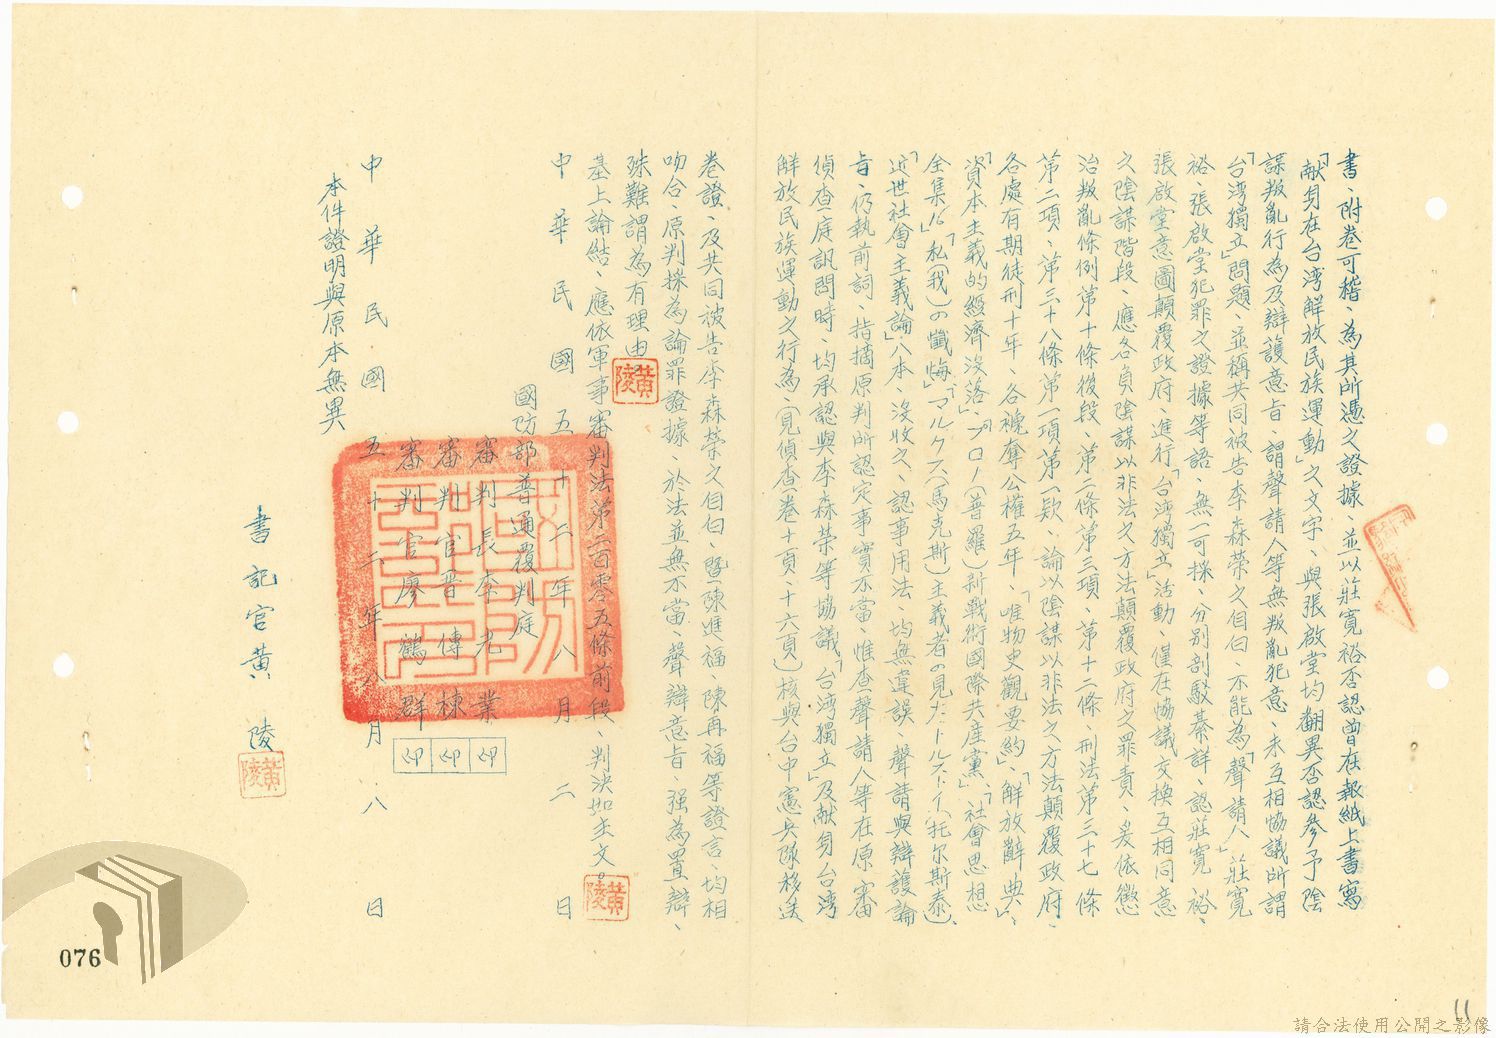 書、附卷可稽、為其所憑之證據、並以莊寬裕否認曾在報紙上書寫
「献身在台湾解放民族運動」之文字、與張啟堂均翻異否認參予陰
謀叛亂行為及辯護意旨、謂聲請人等無叛亂犯意、未互相協議所謂
「台湾獨立」問題、並稱共同被告李森荣之自白、不能為「聲請人」莊寬
裕、張啟堂犯罪之證據等語、無一可採、分別剖駁綦詳、認莊寬裕、
張啟堂意圖顛覆政府、進行「台湾獨立」活動、僅在協議交換互相同意
之陰謀階段、應各負陰謀以非法之方法顛覆政府之罪責、爰依懲
治叛亂條例第十條後段、第二條第三項、第十二條刑法第三十七條
第二項、第三十八條第一項第一款、論以陰謀以非法之方法顛覆政府、
各處有期徒刑十年、各褫奪公權五年、「唯物史觀要約」、「解放辭典」、
「資本主義的經濟沒落」、「プロノ(普羅)新戰術國際共産黨」、「社會思想
全集16」「私(我)の懺悔」「マルクス(馬克斯)主義者の見たトルストイ(托尔斯泰)、
「近世社會主義論」八本、沒收之、認事用法、均無違誤、聲請與辯護論
旨、仍執前詞、指摘原判所認定事實不當、惟查聲請人等在原審
偵查庭訊問時、均承認與李森荣等協議「台湾獨立」及献身台湾
解放民族運動之行為、(見偵查卷十頁、十六頁)核與台中憲兵隊移送
卷證、及共同被告李森荣之自白、暨陳進福、陳再福等證言、均相
吻合、原判採為論罪證據、於法並無不當、聲辯意旨、强為置辯、
殊難謂為有理由
基上論結、應依軍事審判法第二百零五條前段、判決如主文。
中華民國五十二年八月二日
國防部普通覆判庭
審判長李光業
審判官晋傳棟
審判官廖鶴群
印
印
印
中華民國五十二年八月八日
本件證明與原本無異
書記官黄陵
黃陵
黃陵
黃陵
076
11
請合法使用公開之影像